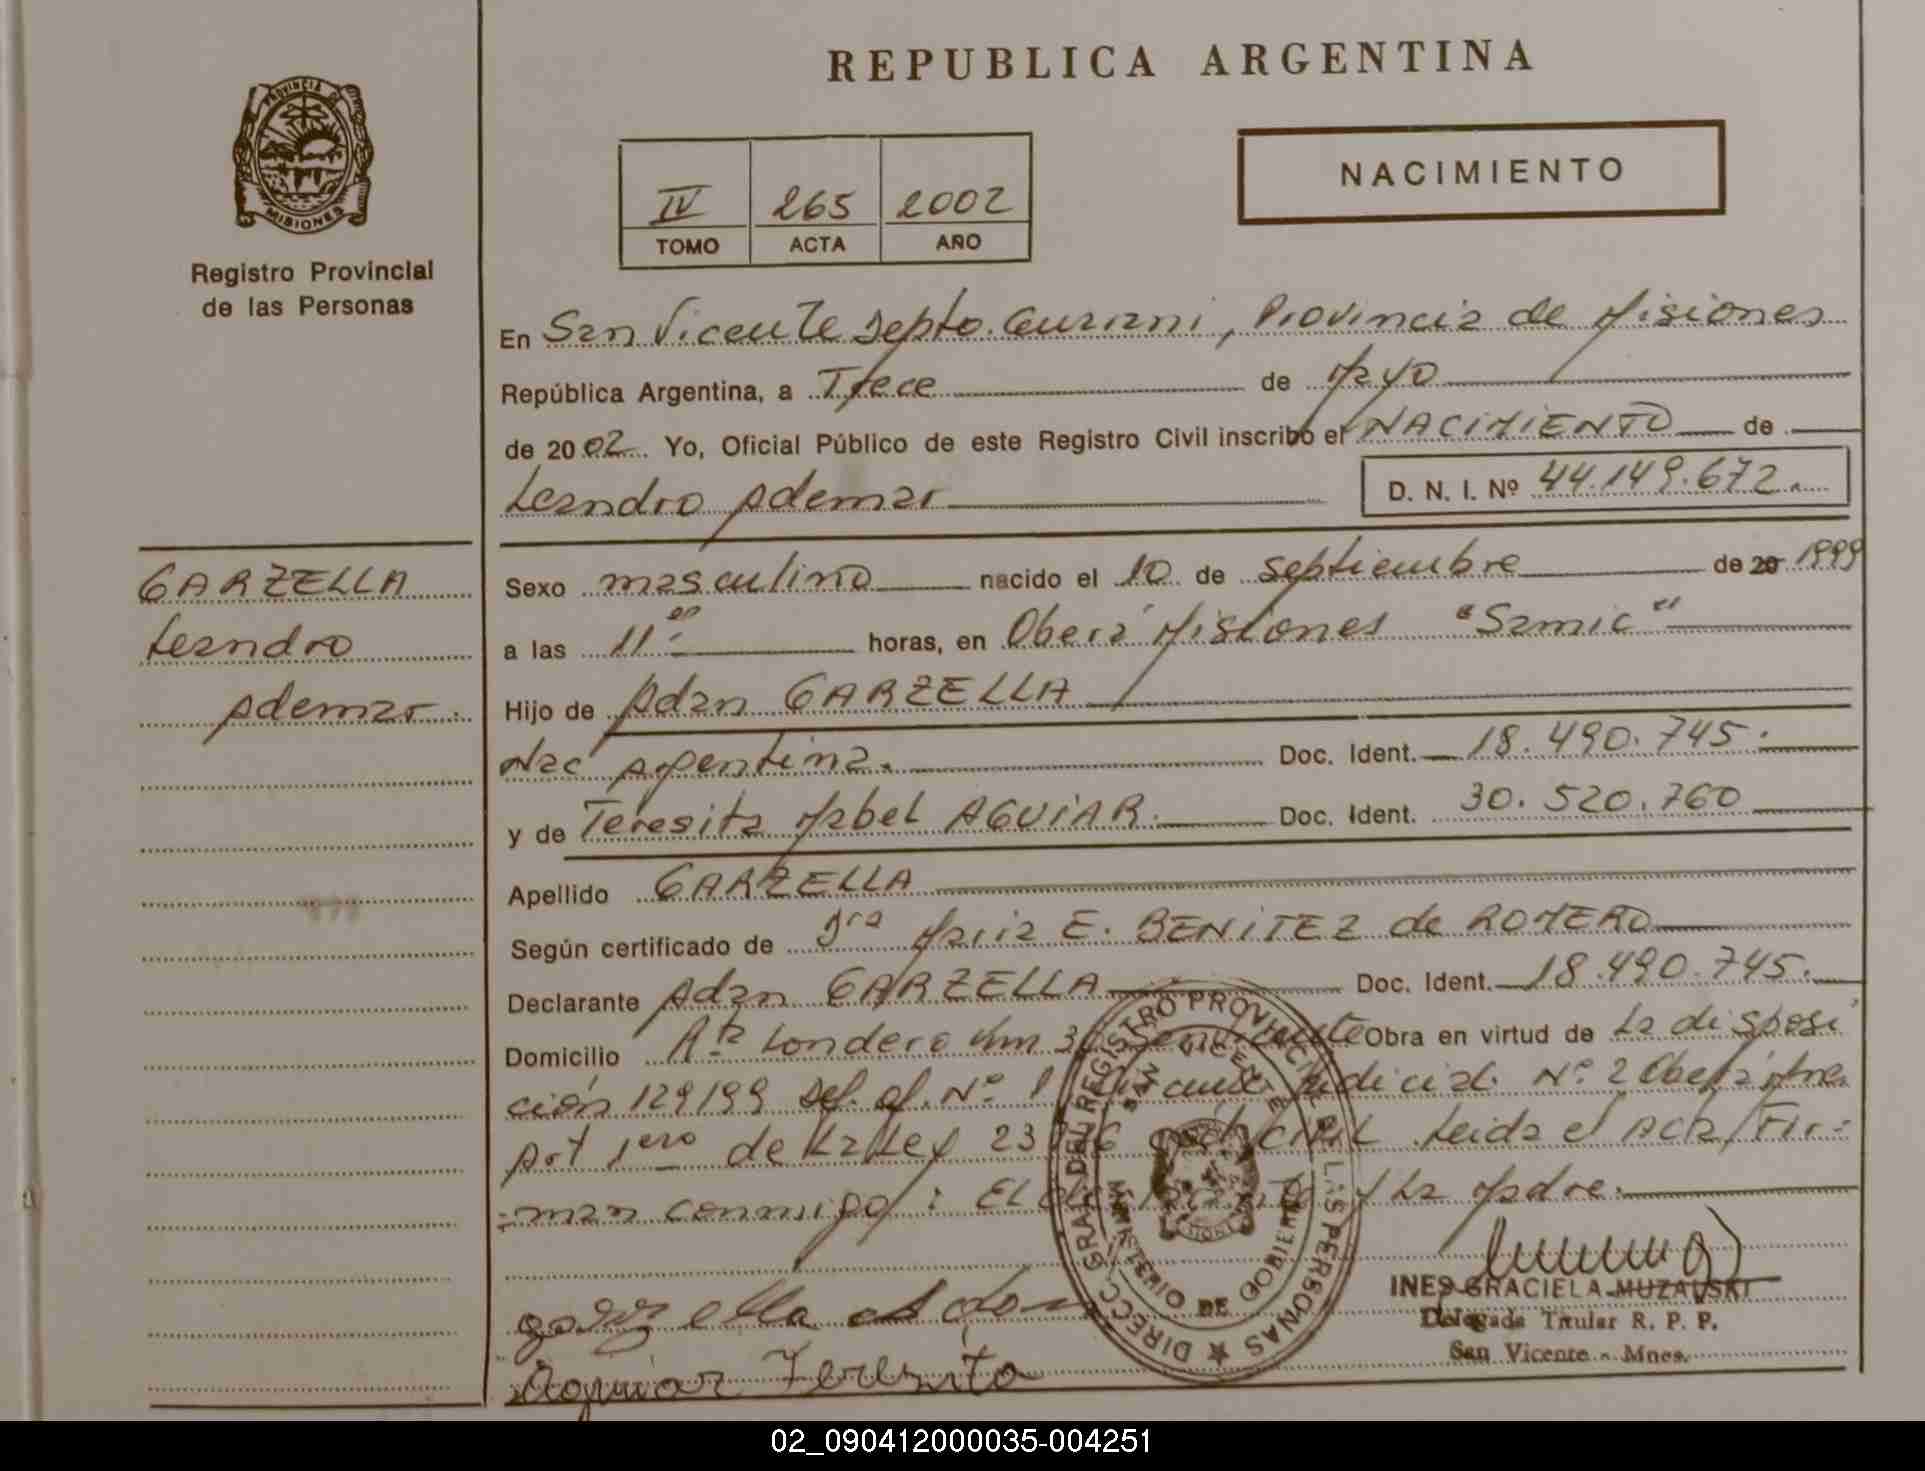 REPUBLICA ARGENTINA
PROVINCIA DE
MISIONES
Registro Provincial
de las Personas
IV 265 2002
TOMO ACTA AÑO
NACIMIENTO
En San Vicente Depto. Guarani, Provincia de Misiones
República Argentina, a Trece de Mayo
de 2002 Yo, Oficial Público de este Registro Civil inscribo el NACIMIENTO de
Leandro Ademar D. N. I. Nº 44.149.672.
GARZELLA
Leandro
Ademar.
Sexo masculino nacido el 10 de septiembre de 20 1999
a las 11 horas, en Oberá Misiones "Samic"
Hijo de Adan GARZELLA
Nac Argentina. Doc. Ident. 18.490.745.
y de Teresita Mabel AGUIAR. Doc. Ident. 30.520.760
Apellido GARZELLA
Según certificado de Dra Maria E. BENITEZ de ROMERO
Declarante Adan GARZELLA Doc. Ident. 18.490.745.
Domicilio Londero km Obra en virtud de La disposi
ción 129/99 Def. of. Nº 1 Judicial Nº 2 Oberá Mnes.
Art 1ero de La Ley Leida el Acta, Fir=
=man conmigo: El y La Madre.
garzella adan
Aguiar Teresita
DIRECC. GRAL. DEL REGISTRO PROVINCIAL DE LAS PERSONAS
SAN VICENTE
MINISTERIO DE GOBIERNO
INES GRACIELA MUZALSKI
Delegada Titular R. P. P.
San Vicente - Mnes.
02_090412000035-004251